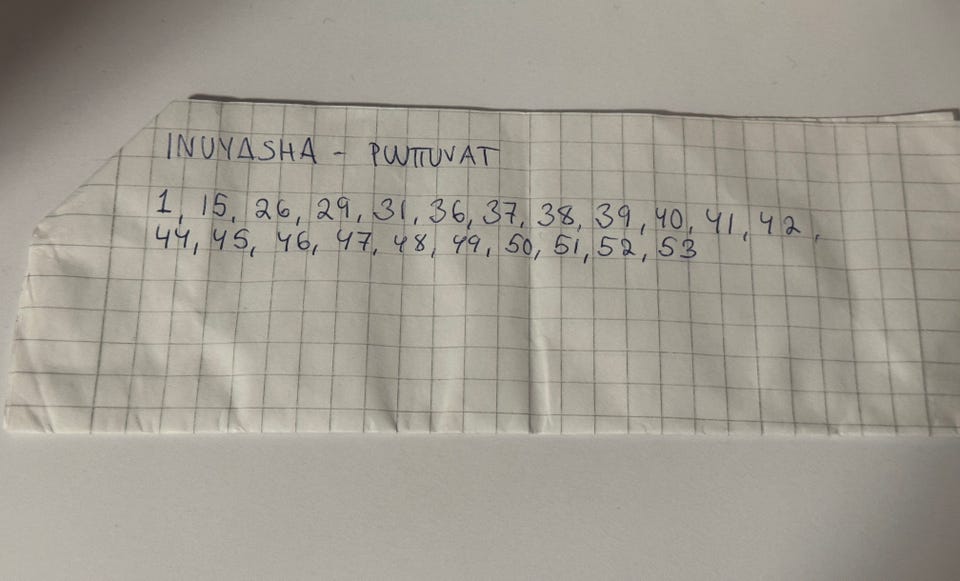 INUYASHA - PUUTTUVAT
1, 15, 26, 29, 31, 36, 37, 38, 39, 40, 41, 42,
44, 45, 46, 47, 48, 49, 50, 51, 52, 53